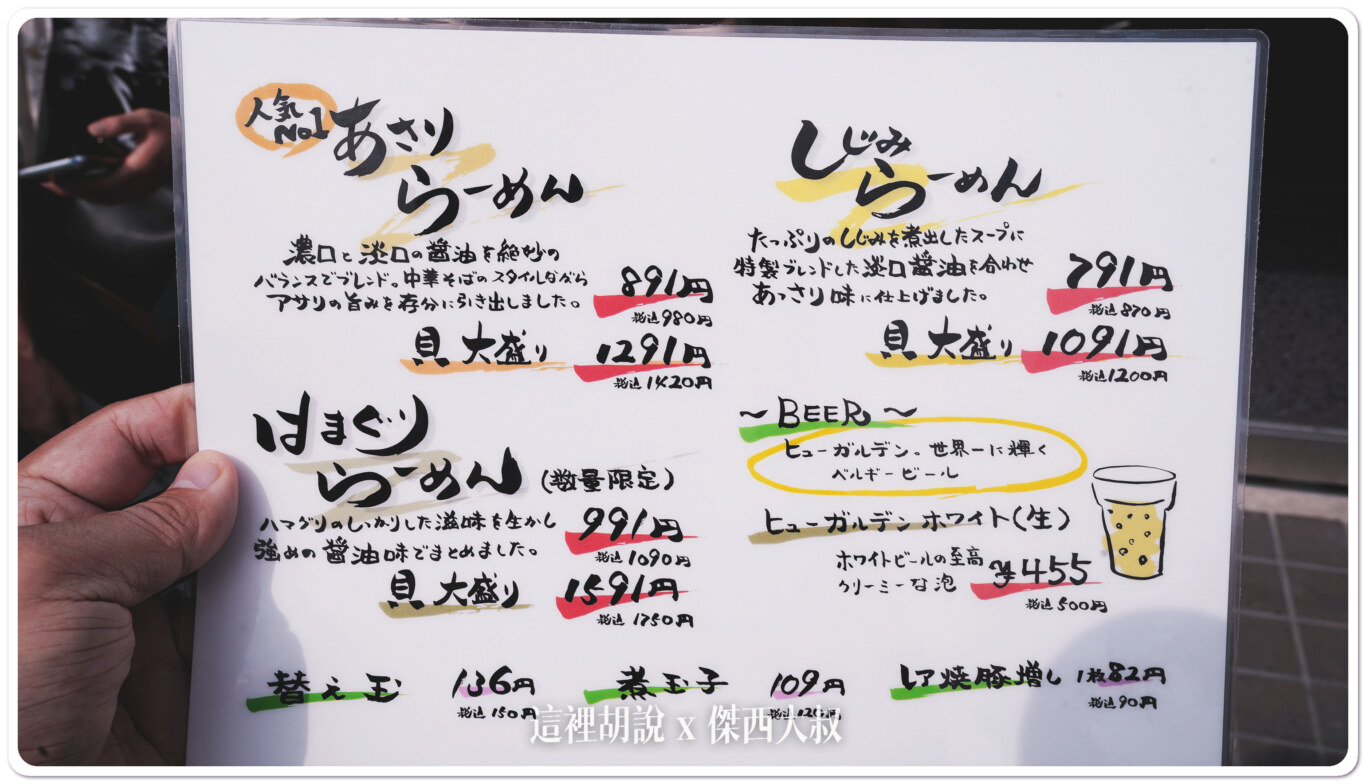 人気
No1
あさり
らーめん
濃口と淡口の醤油を絶妙の
バランスでブレンド。中華そばのスタイルながら
アサリの旨みを存分に引き出しました。
891円
税込980円
貝大盛り 1291円
税込1420円
しじみ
らーめん
たっぷりのしじみを煮出したスープに
特製ブレンドした淡口醤油を合わせ
あっさり味に仕上げました。
791円
税込870円
貝大盛り 1091円
税込1200円
はまぐり
らーめん(数量限定)
ハマグリのしっかりした滋味を生かし
強めの醤油味でまとめました。
991円
税込1090円
貝大盛り 1591円
税込1750円
~BEER~
ヒューガルデン。世界一に輝く
ベルギービール
ヒューガルデンホワイト(生)
ホワイトビールの至高
クリーミーな泡
¥455
税込500円
替え玉 136円
税込150円
煮玉子 109円
税込120円
レア焼豚増し 1枚82円
税込90円
這裡胡說 x 傑西大叔